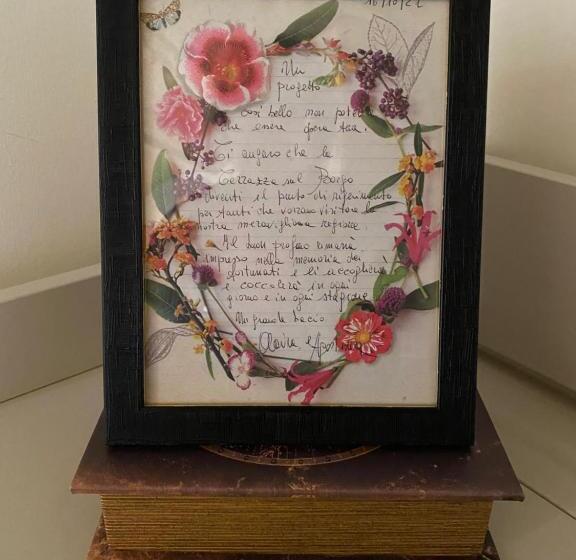 16/10/22
Un
progetto
così bello non poteva
che essere opera tua.
Ti auguro che la
Terrazza sul Borgo
diventi il punto di riferimento
per tanti che vorranno visitare la
nostra meravigliosa regione.
Il buon profumo rimarrà
impresso nella memoria dei
fortunati e li accoglierà
e coccolerà in ogni
giorno e in ogni stagione
Un grande bacio